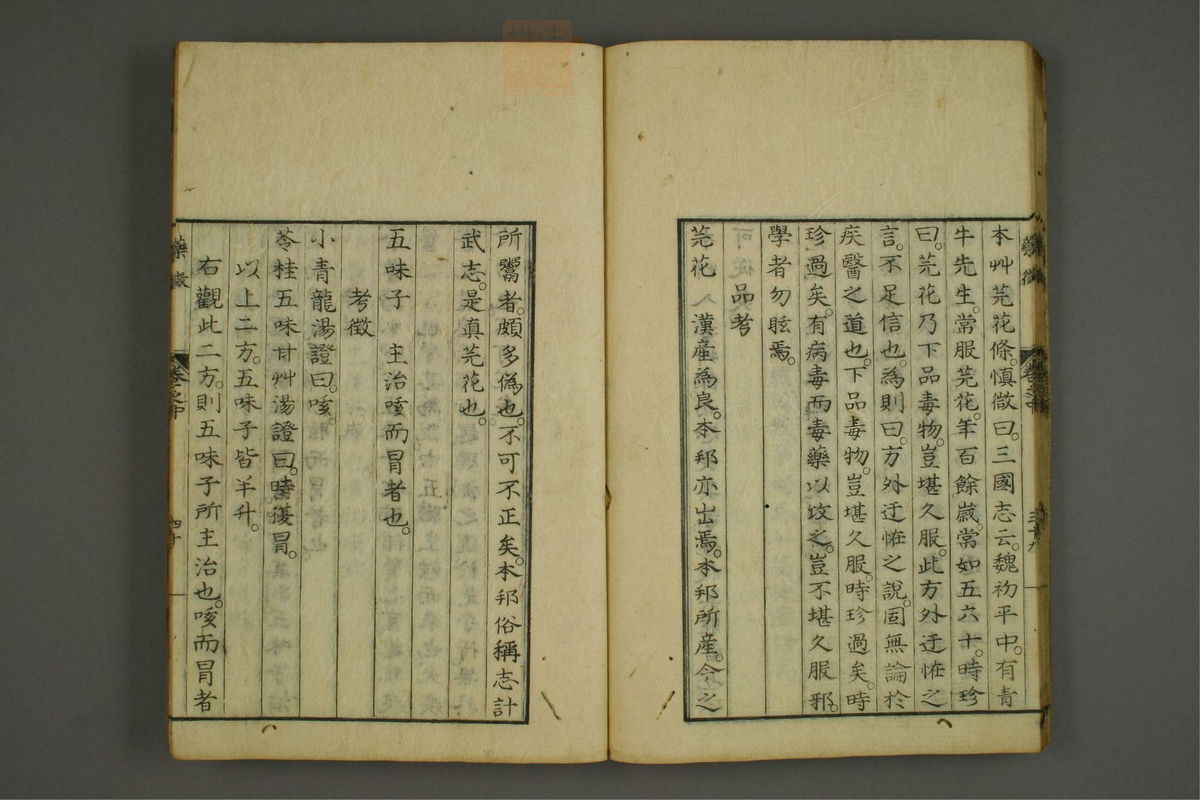 本艸芫花條慎微曰。三國志云。魏初平中。有青
牛先生。常服芫花。年百餘歲。常如五六十。時珍
曰。芫花乃下品毒物。豈堪久服。此方外迂恠之
言。不足信也。為則曰。方外迂恠之說。固無論於
疾醫之道也。下品毒物。豈堪久服。時珍過矣。時
珍過矣。有病毒而毒藥以攻之。豈不堪久服邪。
學者勿眩焉。
品考
芫花 漢產為良。本邦亦出焉。本邦所產。今之
所鬻者。頗多偽也。不可不正矣。本邦俗稱志計
武志。是真芫花也。
五味子 主治咳而冒者也。
考徵
小青龍湯證曰。咳。
苓桂五味甘艸湯證曰。時復冒。
以上二方。五味子皆半升。
右觀此二方。則五味子所主治也。咳而冒者
藥徵
卷之中
三十九
藥徵
卷之中
四十